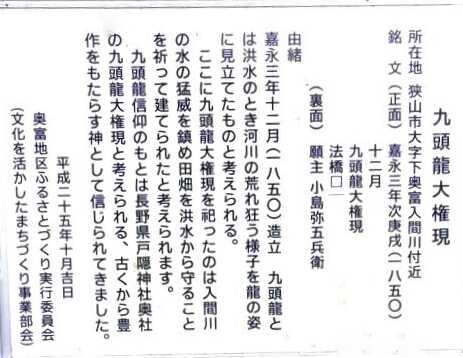 九頭龍大権現
所在地 狭山市大字下奥富入間川付近
銘 文(正面) 嘉永三年次庚戌(一八五〇)
十二月
九頭龍大権現
法橋□
(裏面) 願主 小島弥五兵衛
由緒
嘉永三年十二月(一八五〇)造立 九頭龍と
は洪水のとき河川の荒れ狂う様子を龍の姿
に見立てたものと考えられる。
ここに九頭龍大権現を祀ったのは入間川
の水の猛威を鎮め田畑を洪水から守ること
を祈って建てられたと考えられます。
九頭龍信仰のもとは長野県戸隠神社奥社
の九頭龍大権現と考えられる、古くから豊
作をもたらす神として信じられてきました。
平成二十五年十月吉日
奥富地区ふるさとづくり実行委員会
(文化を活かしたまちづくり事業部会)